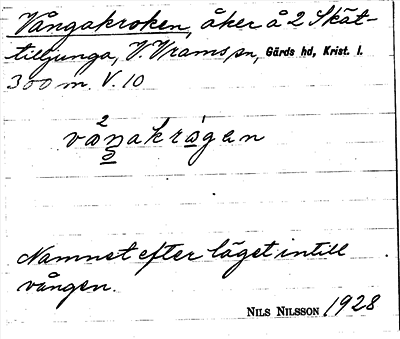 Vångakroken, åker å 2 Skät-
tiljunga, V. Vrams sn, Gärds hd, Krist. l.
300 m. V. 10
Namnet efter läget intill
vången.
NILS NILSSON 1928